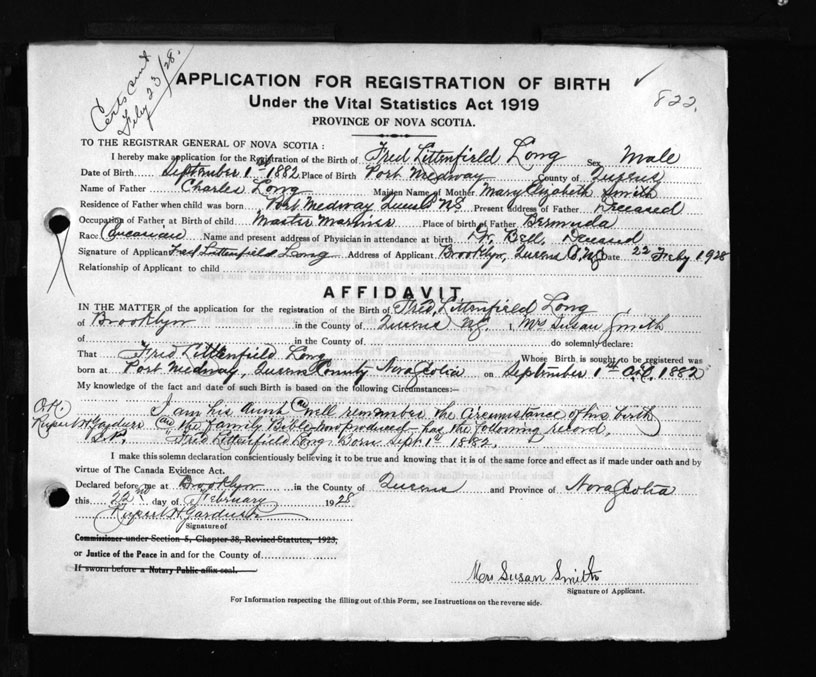 Certs sent
Feby 23/28.
APPLICATION FOR REGISTRATION OF BIRTH
Under the Vital Statistics Act 1919
PROVINCE OF NOVA SCOTIA.
822.
TO THE REGISTRAR GENERAL OF NOVA SCOTIA :
I hereby make application for the Registration of the Birth of Fred Littenfield Long Sex Male
Date of Birth September 1st 1882 Place of Birth Port Medway County of Queens
Name of Father Charles Long Maiden Name of Mother Mary Elizabeth Smith
Residence of Father when child was born Port Medway Queens NS. Present address of Father Deceased
Occupation of Father at Birth of child Master Mariner Place of birth of Father Bermuda
Race Caucasian Name and present address of Physician in attendance at birth Dr. Bell, Deceased
Signature of Applicant Fred Littenfield Long Address of Applicant Brooklyn, Queens Co, NS Date 22 Feby 1928
Relationship of Applicant to child
AFFIDAVIT
IN THE MATTER of the application for the registration of the Birth of Fred, Littenfield Long
of Brooklyn in the County of Queens NS I, Mrs Susan Smith
of in the County of do solemnly declare:
That Fred Littenfield Long Whose Birth is sought to be registered was
born at Port Medway, Queens County Nova Scotia on September 1st A.D. 1882
My knowledge of the fact and date of such Birth is based on the following Circumstances:—
I am his Aunt & well remember the circumstance of his birth
Rupert H Gardner & the family Bible now produced has the following record.
J.P. Fred Littenfield Long, Born Sept 1st 1882.
I make this solemn declaration conscientiously believing it to be true and knowing that it is of the same force and effect as if made under oath and by
virtue of The Canada Evidence Act.
Declared before me at Brooklyn in the County of Queens and Province of Nova Scotia
this 22nd day of February 1928
Rupert H Gardner
Signature of
Commissioner under Section 5, Chapter 38, Revised Statutes, 1923,
or Justice of the Peace in and for the County of
If sworn before a Notary Public affix seal.
Mrs Susan Smith
Signature of Applicant.
For Information respecting the filling out of this Form, see Instructions on the reverse side.